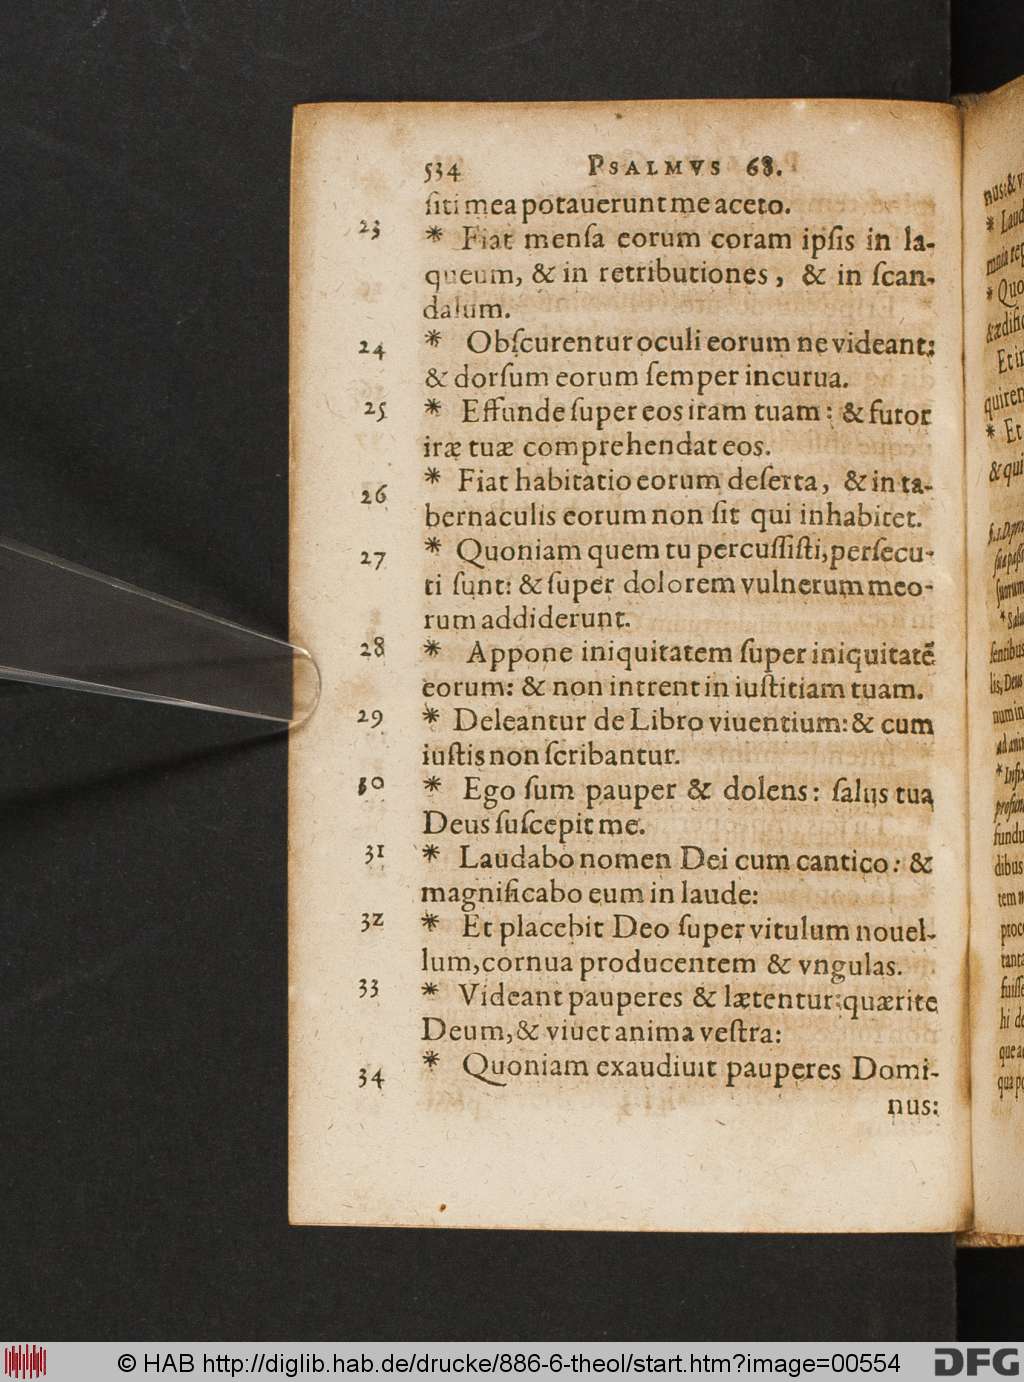 534 PSALMVS 68.
ſiti mea potauerunt me aceto.
23 * Fiat menſa eorum coram ipſis in la-
queum, & in retributiones, & in ſcan-
dalum.
24 * Obſcurentur oculi eorum ne videant:
& dorſum eorum ſemper incurua.
25 * Effunde ſuper eos iram tuam: & furor
iræ tuæ comprehendat eos.
26 * Fiat habitatio eorum deſerta, & in ta-
bernaculis eorum non ſit qui inhabitet.
27 * Quoniam quem tu percuſſiſti, perſecu-
ti ſunt: & ſuper dolorem vulnerum meo-
rum addiderunt.
28 * Appone iniquitatem ſuper iniquitatē
eorum: & non intrent in iuſtitiam tuam.
29 * Deleantur de Libro viuentium: & cum
iuſtis non ſcribantur.
30 * Ego ſum pauper & dolens: ſalus tua
Deus ſuſcepit me.
31 * Laudabo nomen Dei cum cantico: &
magnificabo eum in laude:
32 * Et placebit Deo ſuper vitulum nouel-
lum, cornua producentem & vngulas.
33 * Videant pauperes & lætentur: quærite
Deum, & viuet anima veſtra:
34 * Quoniam exaudiuit pauperes Domi-
nus:
nus: & v
* Laud
* Quo
& ædific
Et in
quiren
* Et
& qui
© HAB http://diglib.hab.de/drucke/886-6-theol/start.htm?image=00554
DFG